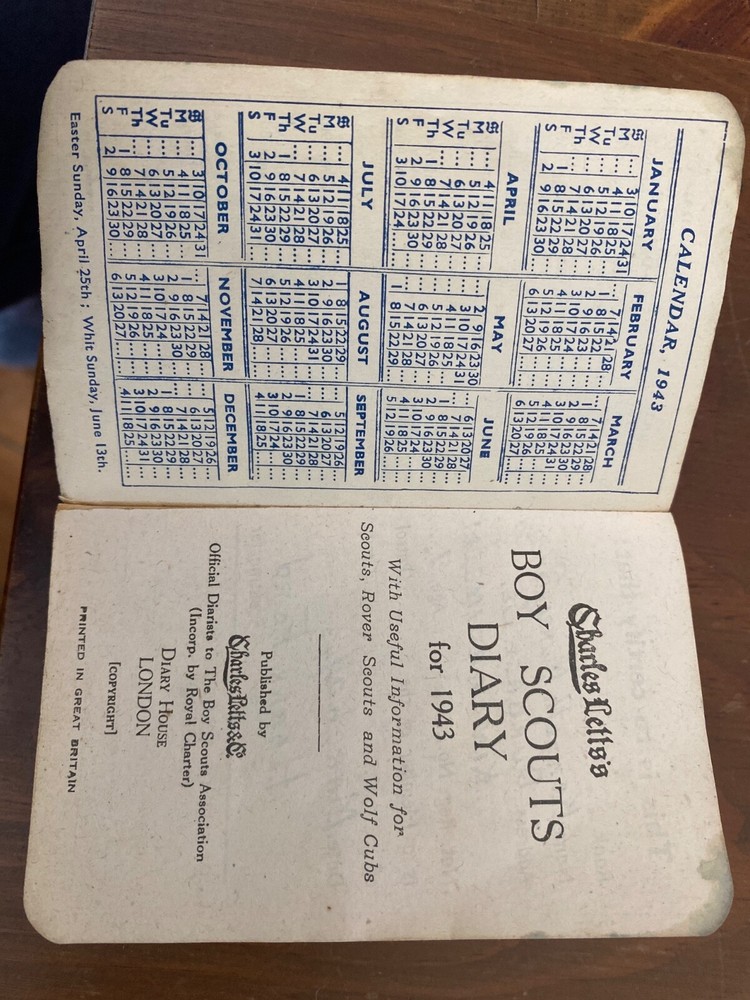 CALENDAR, 1943
JANUARY FEBRUARY MARCH
S ... 3 10 17 24 31 ... 7 14 21 28 ... 7 14 21 28
M ... 4 11 18 25 ... 1 8 15 22 ... 1 8 15 22 29
Tu ... 5 12 19 26 ... 2 9 16 23 ... 2 9 16 23 30
W ... 6 13 20 27 ... 3 10 17 24 ... 3 10 17 24 31
Th ... 7 14 21 28 ... 4 11 18 25 ... 4 11 18 25 ...
F 1 8 15 22 29 ... 5 12 19 26 ... 5 12 19 26 ...
S 2 9 16 23 30 ... 6 13 20 27 ... 6 13 20 27 ...
APRIL MAY JUNE
S ... 4 11 18 25 ... 2 9 16 23 30 ... 6 13 20 27
M ... 5 12 19 26 ... 3 10 17 24 31 ... 7 14 21 28
Tu ... 6 13 20 27 ... 4 11 18 25 ... 1 8 15 22 29
W ... 7 14 21 28 ... 5 12 19 26 ... 2 9 16 23 30
Th 1 8 15 22 29 ... 6 13 20 27 ... 3 10 17 24 ...
F 2 9 16 23 30 ... 7 14 21 28 ... 4 11 18 25 ...
S 3 10 17 24 ... 1 8 15 22 29 ... 5 12 19 26 ...
JULY AUGUST SEPTEMBER
S ... 4 11 18 25 1 8 15 22 29 ... 5 12 19 26
M ... 5 12 19 26 2 9 16 23 30 ... 6 13 20 27
Tu ... 6 13 20 27 3 10 17 24 31 ... 7 14 21 28
W ... 7 14 21 28 4 11 18 25 ... 1 8 15 22 29
Th 1 8 15 22 29 5 12 19 26 ... 2 9 16 23 30
F 2 9 16 23 30 6 13 20 27 ... 3 10 17 24 ...
S 3 10 17 24 31 7 14 21 28 ... 4 11 18 25 ...
OCTOBER NOVEMBER DECEMBER
S ... 3 10 17 24 31 ... 7 14 21 28 ... 5 12 19 26
M ... 4 11 18 25 ... 1 8 15 22 29 ... 6 13 20 27
Tu ... 5 12 19 26 ... 2 9 16 23 30 ... 7 14 21 28
W ... 6 13 20 27 ... 3 10 17 24 ... 1 8 15 22 29
Th ... 7 14 21 28 ... 4 11 18 25 ... 2 9 16 23 30
F 1 8 15 22 29 ... 5 12 19 26 ... 3 10 17 24 31
S 2 9 16 23 30 ... 6 13 20 27 ... 4 11 18 25 ...
Easter Sunday, April 25th; Whit Sunday, June 13th.
Charles Letts's
BOY SCOUTS
DIARY
for 1943
With Useful Information for
Scouts, Rover Scouts and Wolf Cubs
Published by
Charles Letts & Co
Official Diarists to The Boy Scouts Association
(Incorp. by Royal Charter)
DIARY HOUSE
LONDON
[COPYRIGHT]
PRINTED IN GREAT BRITAIN